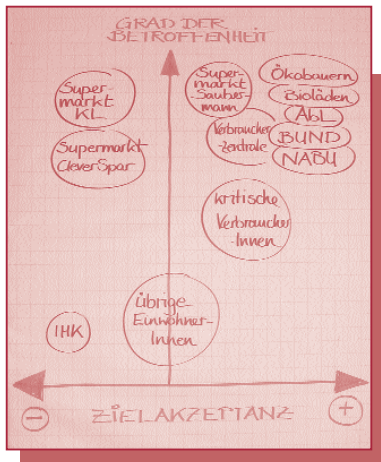 GRAD DER
BETROFFENHEIT
Super-
markt
KL
Supermarkt
CleverSpar
Super-
markt
Sauber-
mann
Verbraucher-
zentrale
Ökobauern
Bioläden
AbL
BUND
NABU
kritische
Verbraucher
-Innen
übrige
Einwohner-
Innen
IHK
-
ZIELAKZEPTANZ
+